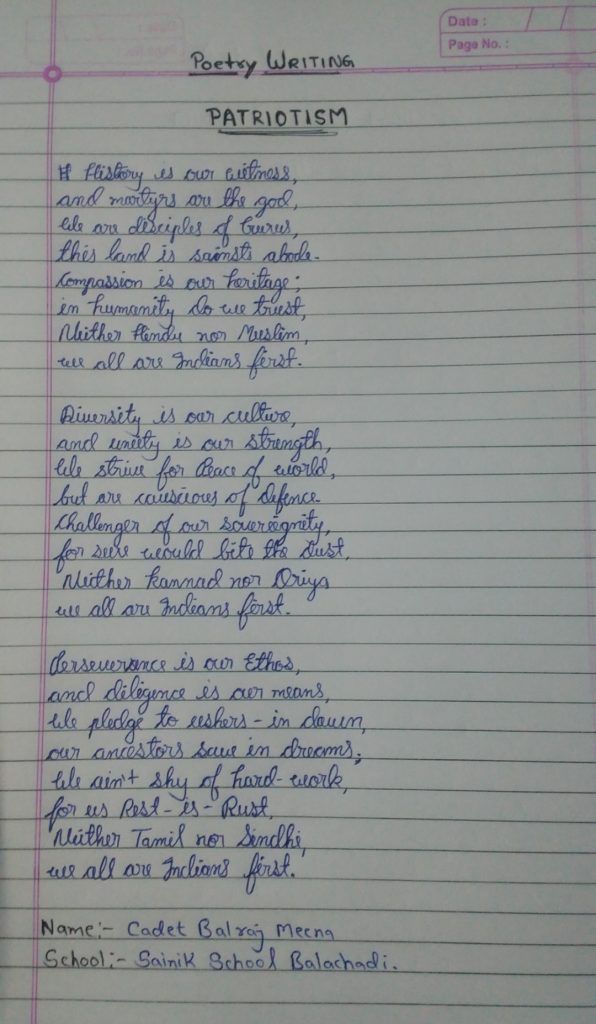 Date : / /
Page No. :
Poetry WRITING
PATRIOTISM
History is our witness,
and martyrs are the god,
We are disciples of Gurus,
this land is sainsts abode.
Compassion is our heritage;
in humanity do we trust,
Neither Hindu nor Muslim,
we all are Indians first.
Diversity is our culture,
and unity is our strength,
We strive for Peace of world,
but are of defence
Challenger of our sovereignity,
for sure would bite the dust,
Neither Kannad nor Oriya
we all are Indians first.
Perseverance is our Ethos,
and diligence is our means,
We pledge to ushers-in dawn,
our ancestors saw in dreams;
We ain't shy of hard-work,
for us Rest-is-Rust,
Neither Tamil nor Sindhi,
we all are Indians first.
Name:- Cadet Balraj Meena
School:- Sainik School Balachadi.